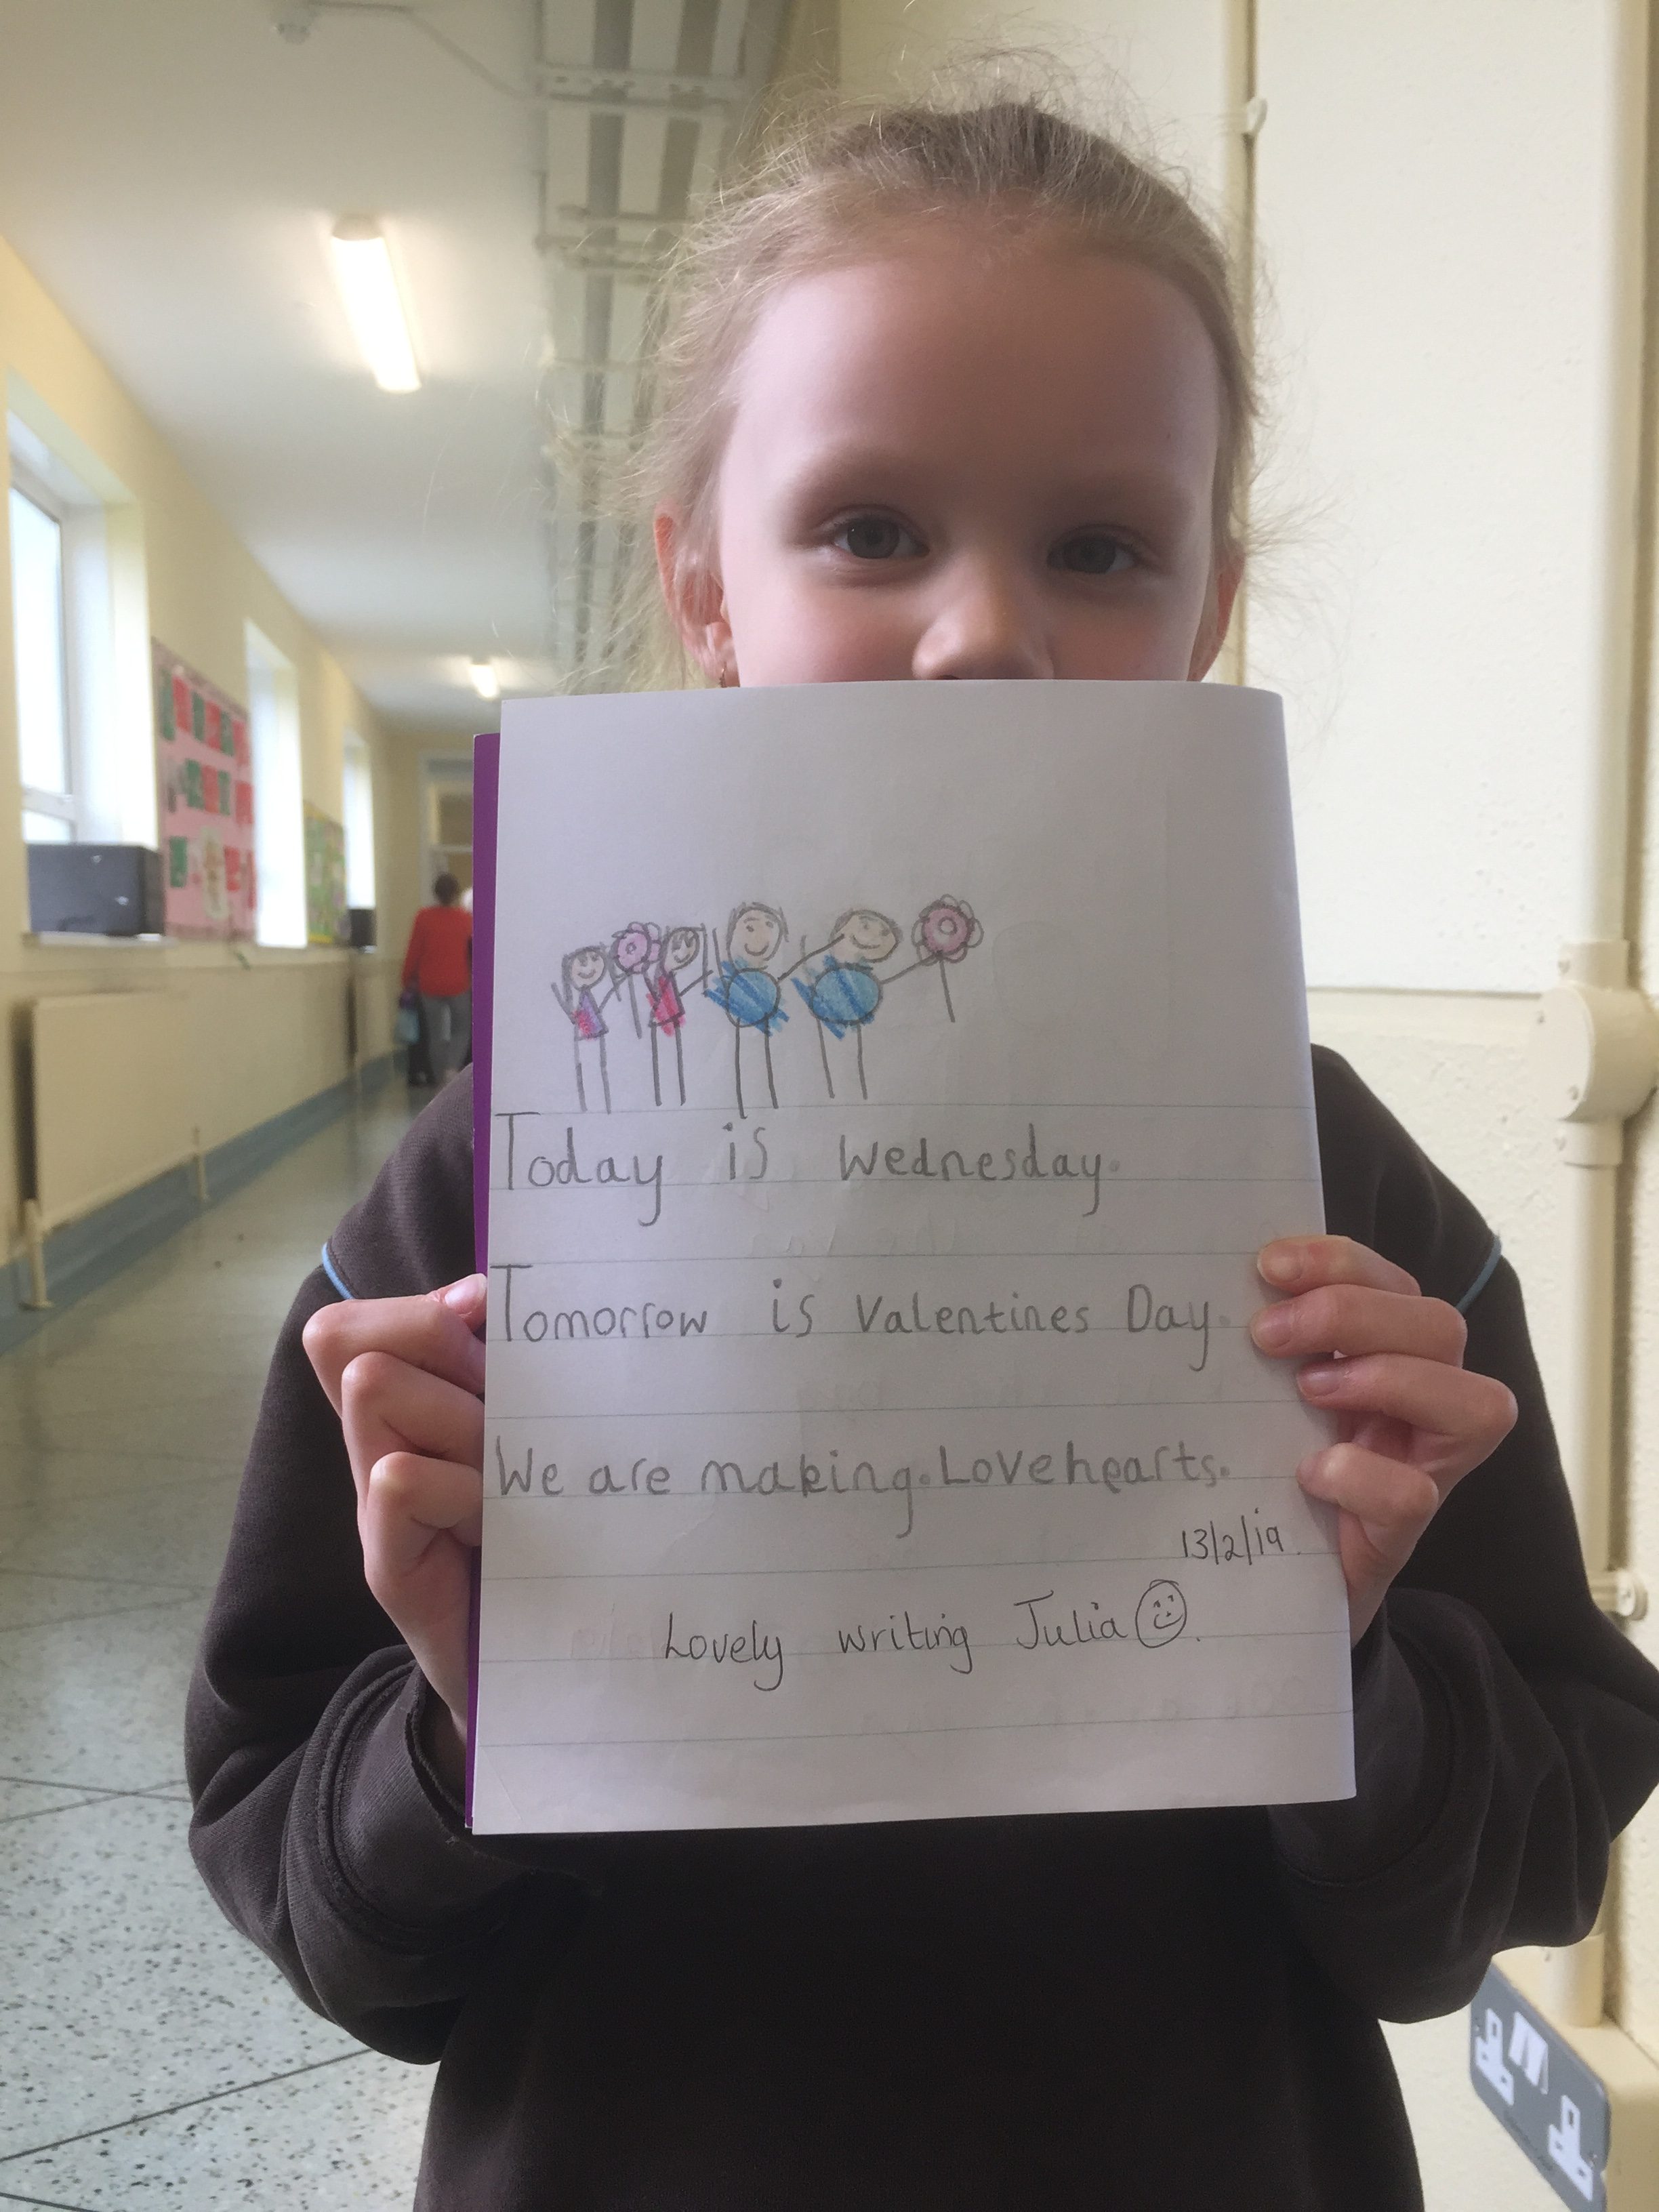 Today is Wednesday.
Tomorrow is Valentines Day.
We are making.Lovehearts.
13/2/19.
Lovely writing Julia